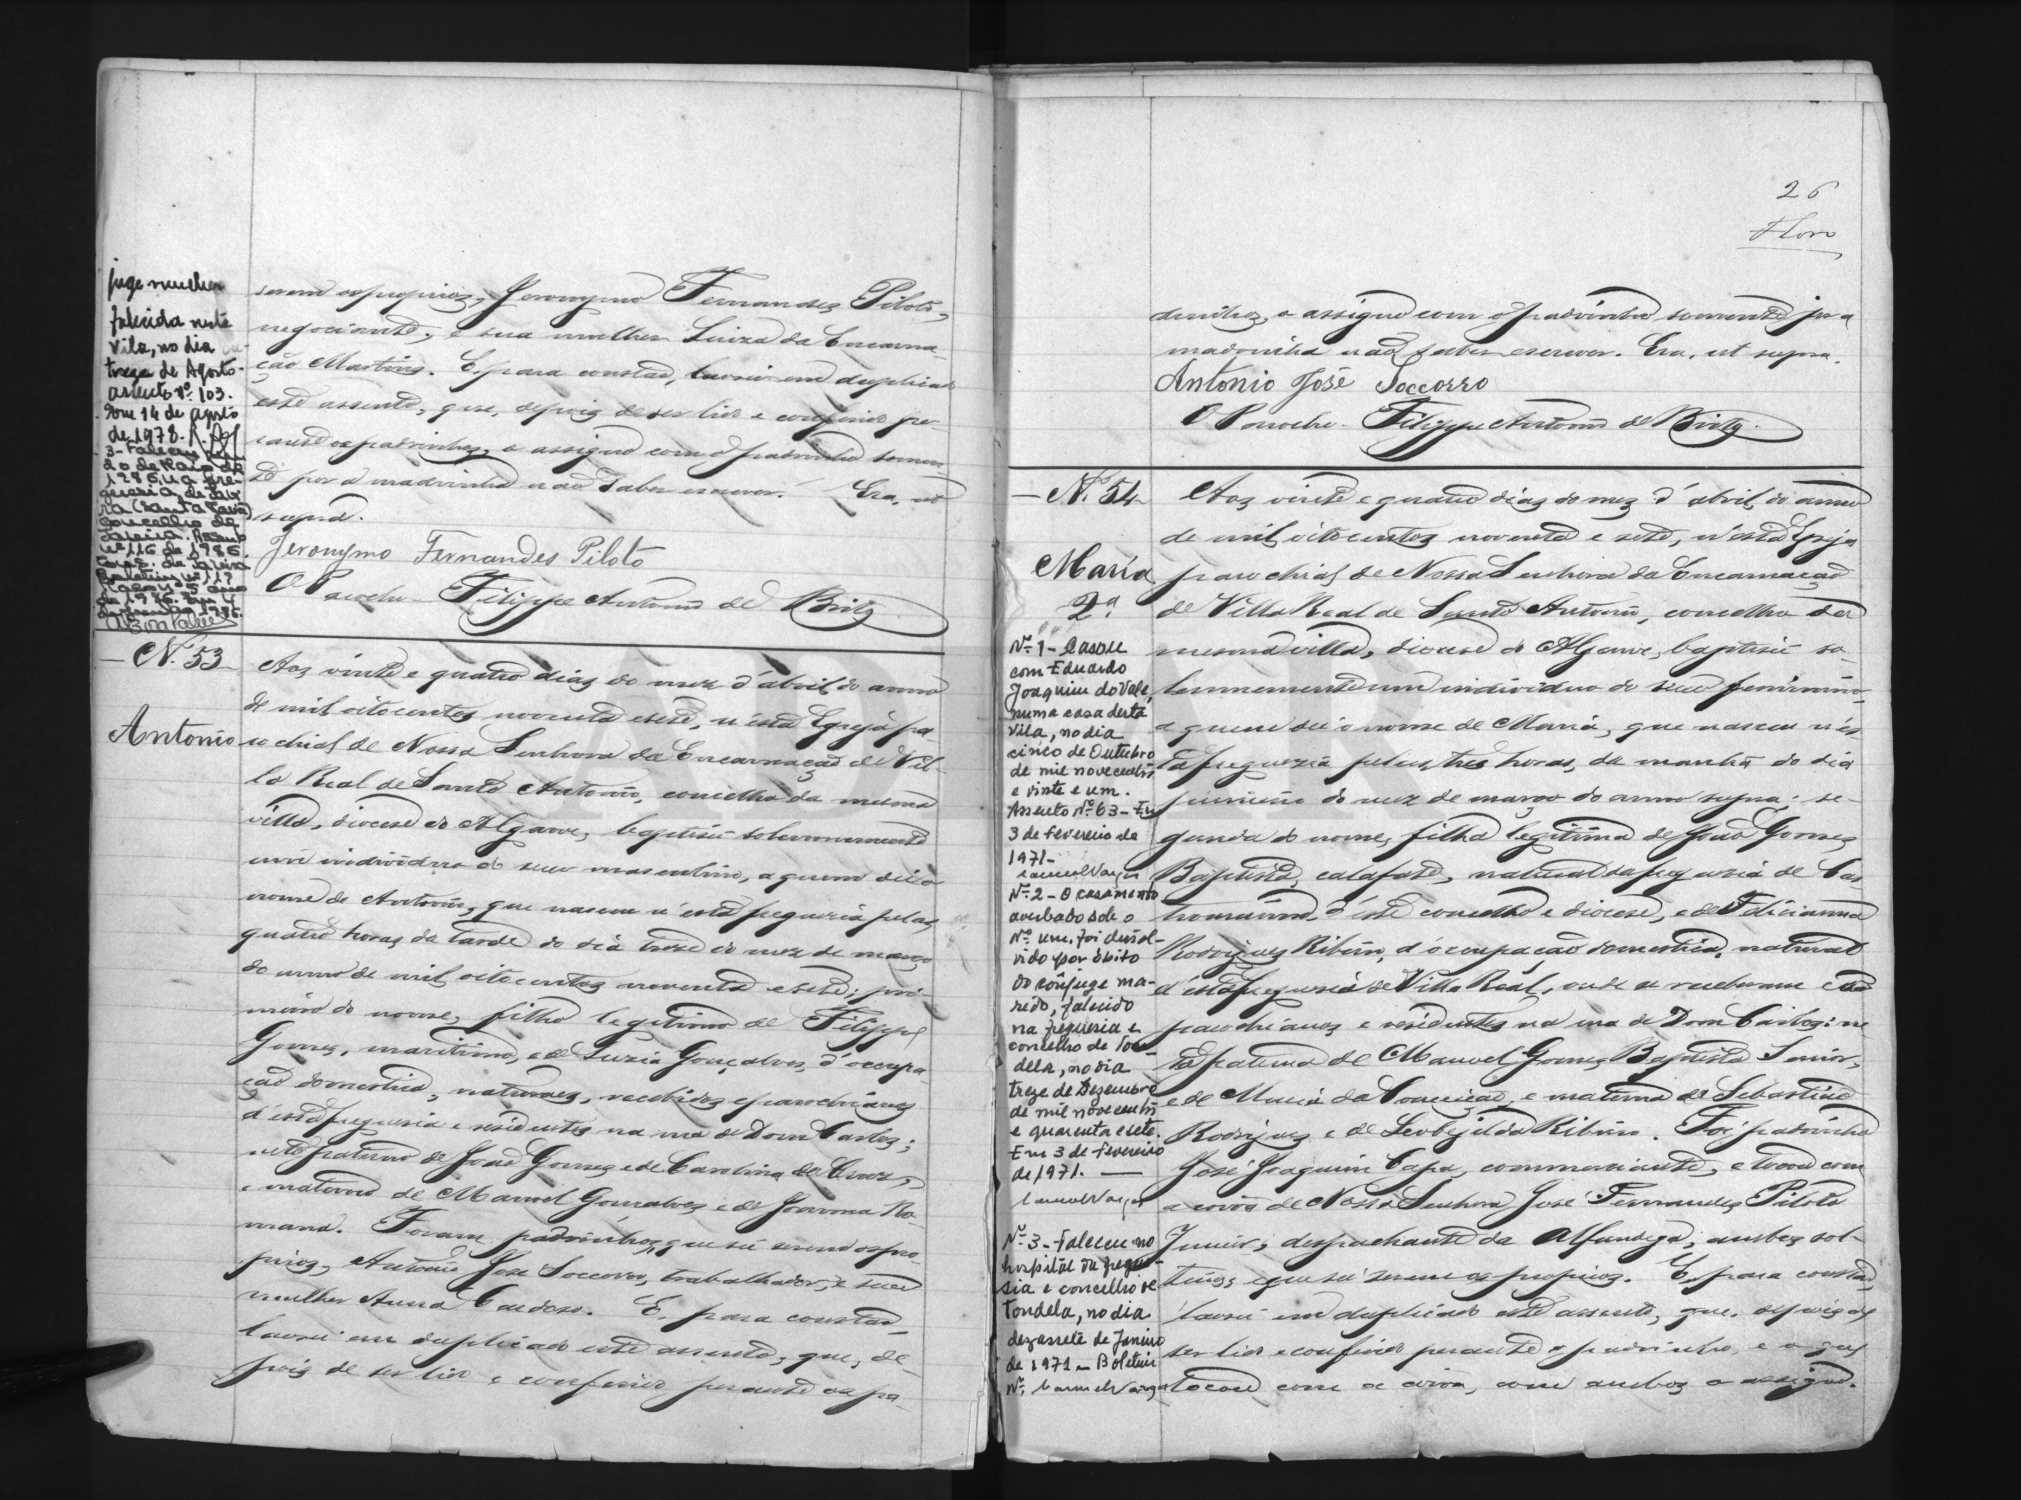 juge mulher
falecida nesta
vila, no dia
treze de Agosto
assento nº 103.
Em 14 de agosto
de 1978.
3 - Faleceu
de Maio de
1986, na fre-
guesia de
(Santa Maria)
concelho de
Tavira. Assento
nº 116 de 1986.
serem os proprios, Jeronymo Fernandes Piloto,
negociante, e sua mulher Luiza da Encarna-
ção Martins. E para constar, lavrei em duplicado
este assento, que, depois de ser lido e conferido pe-
rante os padrinhos, o assigno com o padrinho somen-
te por a madrinha não saber escrever. Era, ut
supra.
Jeronymo Fernandes Piloto
O Parocho Filippe Antonio de Brito
Nº 53
Antonio
Aos vinte e quatro dias do mez d'abril do anno
de mil oitocentos noventa e sete, n'esta Egreja pa-
rochial de Nossa Senhora da Encarnação de Vil-
la Real de Santo Antonio, concelho da mesma
villa, diocese do Algarve, baptisei solemnemente
um individuo do sexo masculino, a quem dei o
nome de Antonio, que nasceu n'esta freguezia pelas
quatro horas da tarde do dia treze do mez de março
do anno de mil oitocentos noventa e sete; pri-
meiro do nome, filho legitimo de Filippe
Gomes, maritimo, e de Luzia Gonçalves, d'occupa-
ção domestica, naturaes, recebidos e parochianos
d'esta freguezia e residentes na rua de Dom Carlos;
neto paterno de João Gomes e de Carolina da Cruz,
e materno de Manoel Gonçalves e de Joanna Ro-
mana. Foram padrinhos, que sei serem os pro-
prios, Antonio José Soccorro, trabalhador, e sua
mulher Anna Cardoso. E, para constar,
lavrei em duplicado este assento, que, de-
pois de ser lido e conferido perante os pa-
26
drinhos, o assigno com o padrinho somente por a
madrinha não saber escrever. Era, ut supra.
Antonio José Soccorro
O Parocho Filippe Antonio de Brito
Nº 54
Maria
2ª
Nº 1 - Casou
com Eduardo
Joaquim do Vale,
numa casa desta
vila, no dia
cinco de Outubro
de mil novecentos
e vinte e um.
Assento Nº 63 - Em
3 de fevereiro de
1971 -
Nº 2 - O casamento
averbado sob o
Nº um, foi dissol-
vido por óbito
do cônjuge ma-
rido, falecido
na freguesia e
concelho de Ton-
dela, no dia
treze de Dezembro
de mil novecentos
e quarenta e sete.
Em 3 de fevereiro
de 1971. —
Nº 3 - Faleceu no
hospital da fregue-
sia e concelho de
Tondela, no dia
dezassete de Janeiro
de 1971 - Boletim
Nº.
Aos vinte e quatro dias do mez d'abril do anno
de mil oitocentos noventa e sete, n'esta Egreja
parochial de Nossa Senhora da Encarnação
de Villa Real de Santo Antonio, concelho da
mesma villa, diocese do Algarve, baptisei so-
lemnemente um individuo do sexo feminino
a quem dei o nome de Maria, que nasceu n'es-
ta freguezia pelas tres horas da manhã do dia
primeiro do mez de março do anno supra; se-
gunda do nome, filha legitima de João Gomes
Baptista, calafate, natural da freguezia de Cas-
tromarim, d'este concelho e diocese, e de Felicianna
Rodrigues Ribeiro, d'occupação domestica, natural
d'esta freguezia de Villa Real, onde se receberam e são
parochianos e residentes na rua de Dom Carlos; ne-
ta paterna de Manoel Gomes Baptista Senior,
e de Maria da Conceição, e materna de Sebastião
Rodrigues e de Leobejilda Ribeiro. Foi padrinho
José Joaquim Capa, commerciante, e tocou com
a coroa de Nossa Senhora José Fernandes Piloto
Junior, despachante da Alfandega, ambos sol-
teiros, e que sei serem os proprios. E, para constar,
lavrei em duplicado este assento, que, depois de
ser lido e conferido perante o padrinho, e o que
tocou com a coroa, com ambos o assigno.